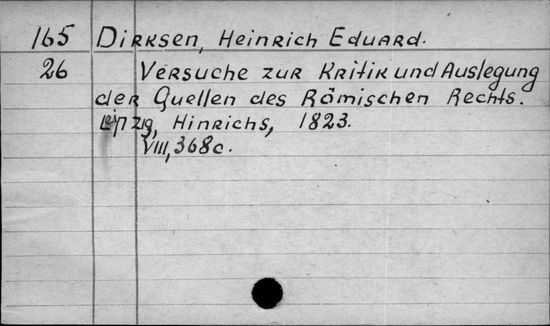 165 Dirksen, Heinrich Eduard.
26 Versuche zur Kritik und Auslegung
der Quellen des Römischen Rechts.
Leipzig, Hinrichs, 1823.
VIII, 368c.